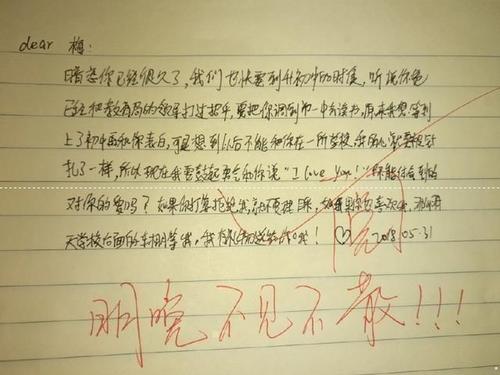 dear 梅：
暗恋你已经很久了，我们也快要到升初中的时候，听说你爸
已经把教育局的领导打过招乎，要把你调到市一中去读书，原来我想等到
上了初中再和你表白，可是想到以后不能和你在一所学校，我的心就要被针
扎了一样，所以现在我要鼓起勇气和你说"I love You！"你能体会到的
对你的爱吗？如果你打算拒绝我，就不要理睬，如果你也喜欢我，
天学校后面的车棚等我，我有礼物送给你哦！♡ 2018.05.31
阅
明晚不见不散！！！